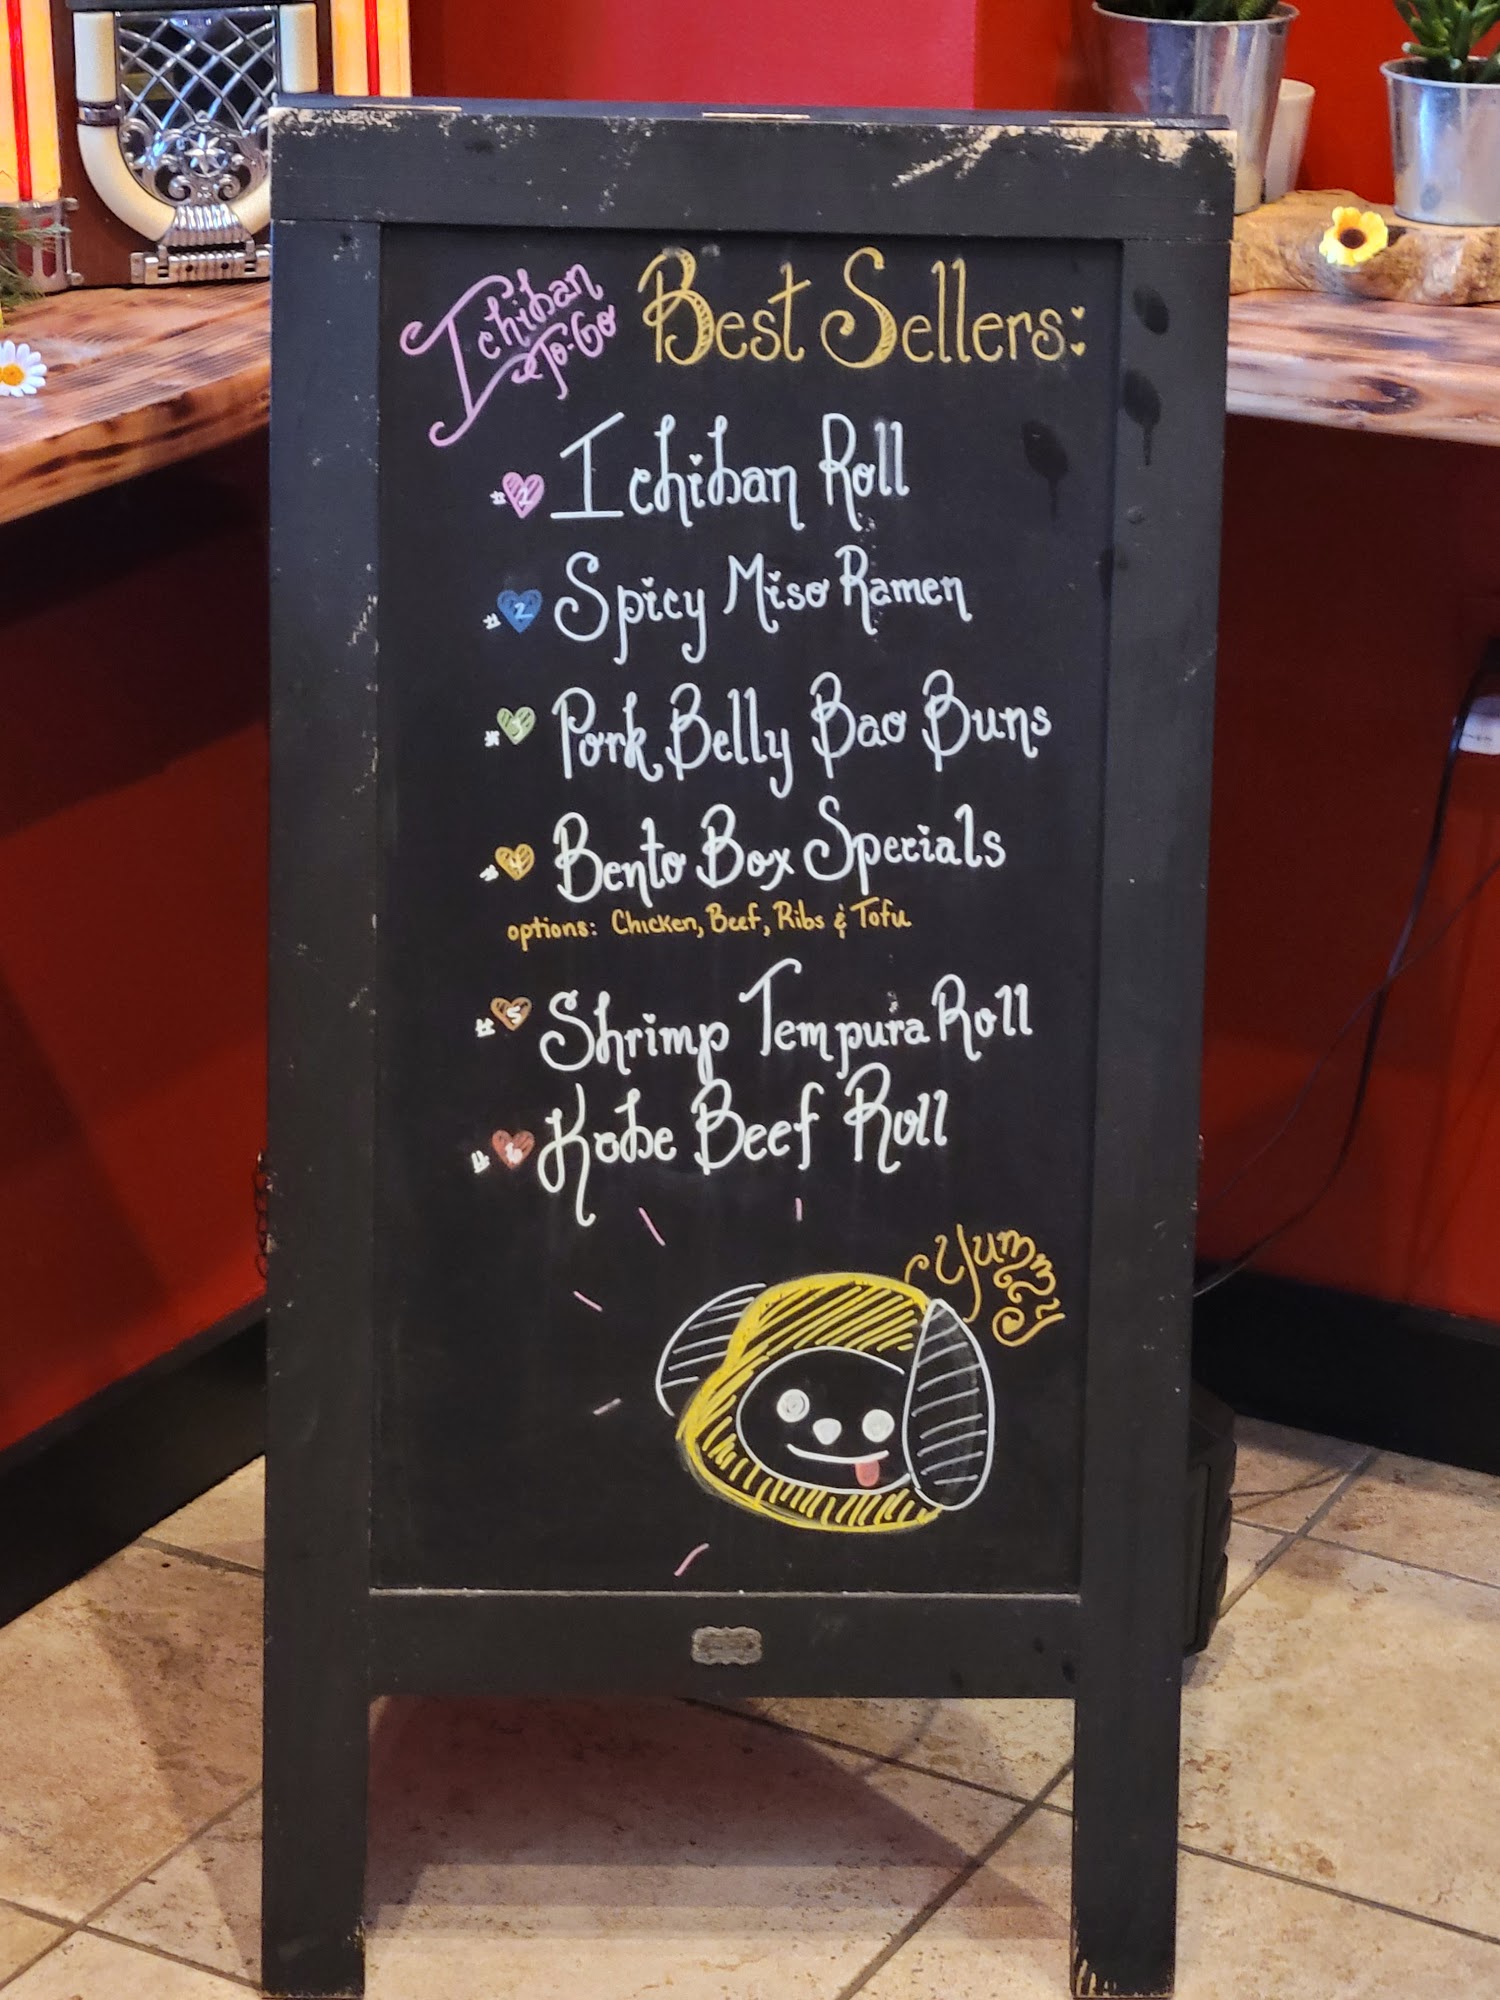 Ichiban To-Go
Best Sellers:
#1 Ichiban Roll
#2 Spicy Miso Ramen
#3 Pork Belly Bao Buns
#4 Bento Box Specials
options: Chicken, Beef, Ribs & Tofu
#5 Shrimp Tempura Roll
#6 Kobe Beef Roll
Yummy